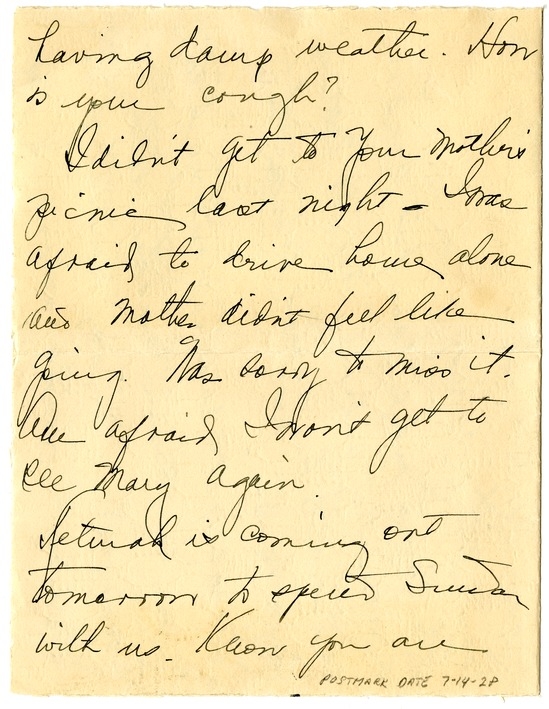 having damp weather. How
is your cough?
I didn't get to your mother's
picnic last night - I was
afraid to drive home alone
and Mother didn't feel like
going. Was sorry to miss it.
Am afraid I won't get to
see Mary again.
is coming out
tomorrow to spend Sunday
with us. Know you are
POSTMARK DATE 7-14-28